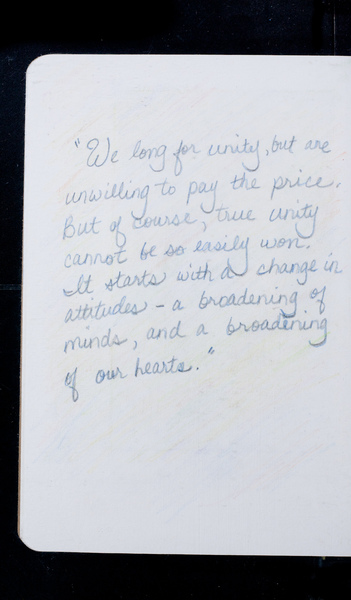 "We long for unity, but are
unwilling to pay the price.
But of course, true unity
cannot be so easily won.
It starts with a change in
attitudes - a broadening of
minds, and a broadening
of our hearts."